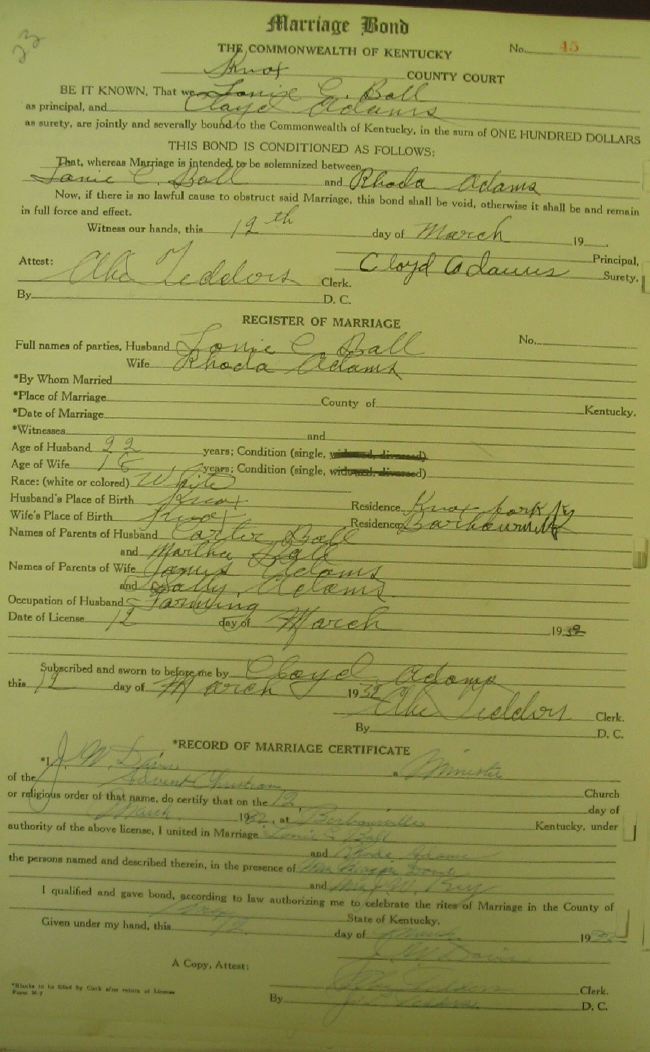 23
Marriage Bond
THE COMMONWEALTH OF KENTUCKY No. 45
Knox COUNTY COURT
BE IT KNOWN, That we Lonie C. Ball
as principal, and Cloyd Adams
as surety, are jointly and severally bound to the Commonwealth of Kentucky, in the sum of ONE HUNDRED DOLLARS
THIS BOND IS CONDITIONED AS FOLLOWS:
That, whereas Marriage is intended to be solemnized between
Lonie C. Ball and Rhoda Adams
Now, if there is no lawful cause to obstruct said Marriage, this bond shall be void, otherwise it shall be and remain
in full force and effect.
Witness our hands, this 12th day of March 19
Principal,
Attest: Abe Teddors Clerk. Cloyd Adams Surety.
By D. C.
REGISTER OF MARRIAGE
Full names of parties, Husband Lonie C Ball No.
Wife Rhoda Adams
*By Whom Married
*Place of Marriage County of Kentucky.
*Date of Marriage
*Witnesses and
Age of Husband 22 years; Condition (single, widowed, divorced)
Age of Wife 18 years; Condition (single, widowed, divorced)
Race: (white or colored) White
Husband's Place of Birth Knox Residence Knox
Wife's Place of Birth Knox Residence Barbourville
Names of Parents of Husband Carter Ball
and Martha Ball
Names of Parents of Wife James Adams
and Sally Adams
Occupation of Husband Farming
Date of License 12 day of March 1932
Subscribed and sworn to before me by Cloyd Adams
this 12 day of March 1932
Abe Teddors Clerk.
By D. C.
*RECORD OF MARRIAGE CERTIFICATE
*I, J. W. Davis a Minister
of the Advent Christian Church
or religious order of that name, do certify that on the 12 day of
March 1932, at Barbourville Kentucky, under
authority of the above license, I united in Marriage Lonie C Ball
and Rhoda Adams
the persons named and described therein, in the presence of
and
I qualified and gave bond, according to law authorizing me to celebrate the rites of Marriage in the County of
Knox State of Kentucky.
Given under my hand, this 12 day of March 1932
J. W. Davis
A Copy, Attest:
Clerk.
By D. C.
*Blanks to be filled by Clerk after return of License
Form M-7